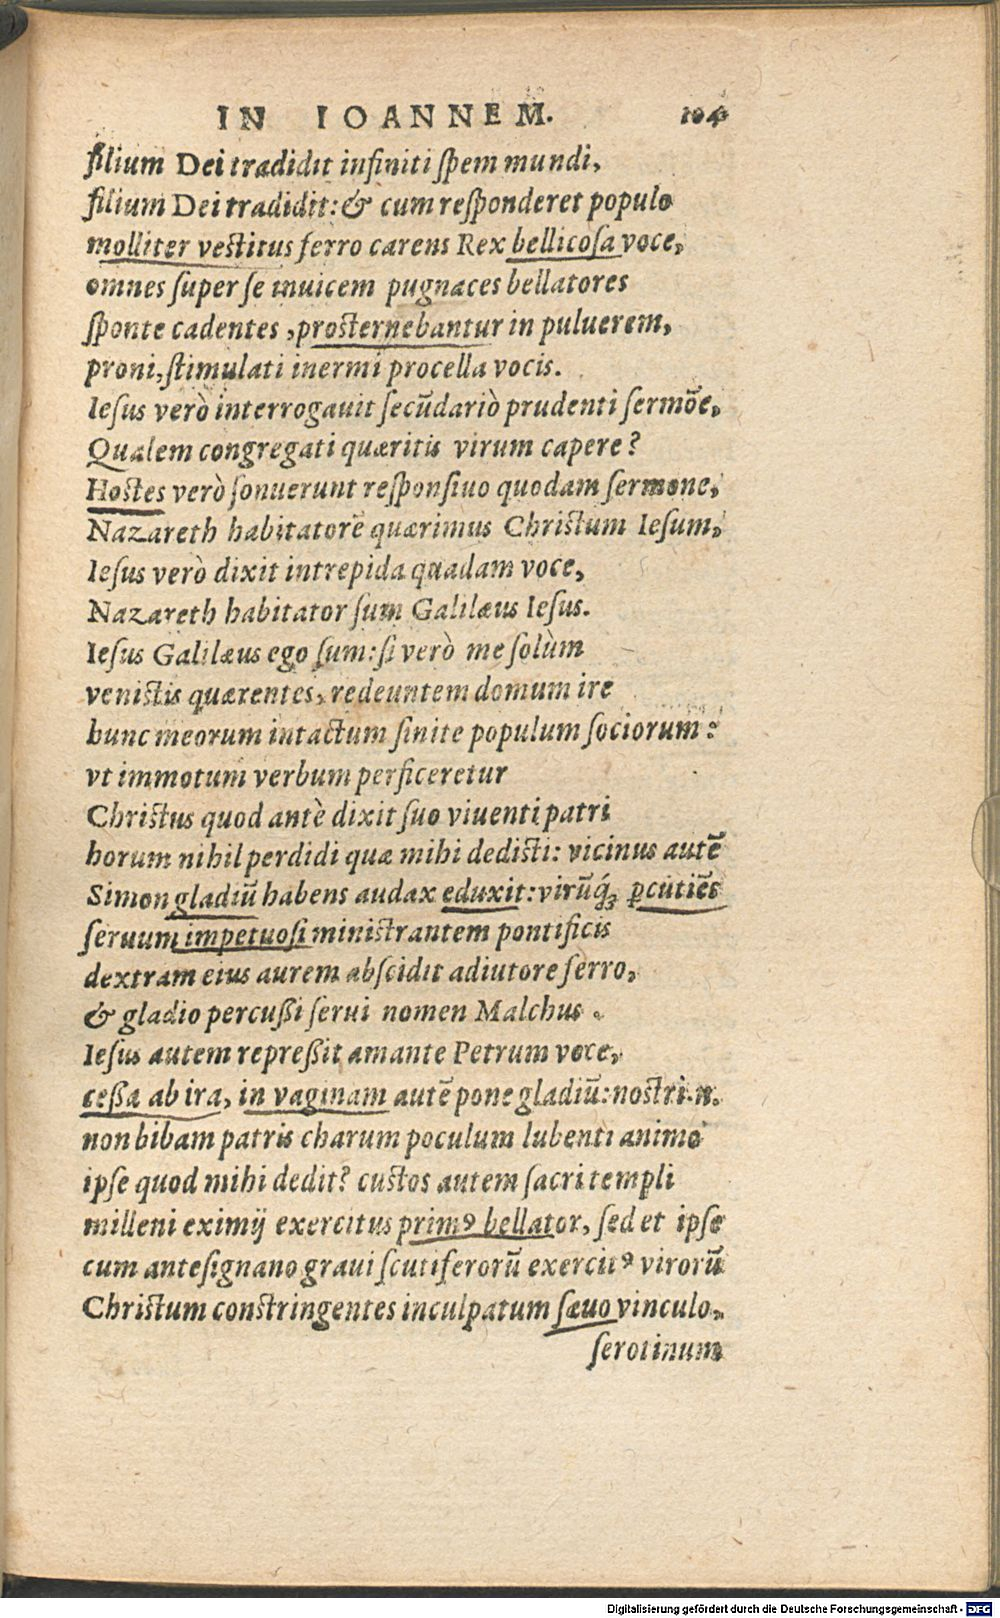 IN IOANNEM. 104
filium Dei tradidit infiniti ſpem mundi,
filium Dei tradidit: & cum reſponderet populo
molliter veſtitus ferro carens Rex bellicoſa voce,
omnes ſuper ſe inuicem pugnaces bellatores
ſponte cadentes, proſternebantur in puluerem,
proni, ſtimulati inermi procella vocis.
Ieſus verò interrogauit ſecũdariò prudenti ſermõe,
Qualem congregati quæritis virum capere?
Hoſtes verò ſonuerunt reſponſiuo quodam ſermone,
Nazareth habitatorẽ quærimus Chriſtum Ieſum,
Ieſus verò dixit intrepida quadam voce,
Nazareth habitator ſum Galilæus Ieſus.
Ieſus Galilæus ego ſum: ſi verò me ſolùm
veniſtis quærentes, redeuntem domum ire
hunc meorum intactum ſinite populum ſociorum:
vt immotum verbum perficeretur
Chriſtus quod antè dixit ſuo viuenti patri
horum nihil perdidi quæ mihi dediſti: vicinus autẽ
Simon gladiũ habens audax eduxit: virũq́ꝫ ꝑcutiẽs
ſeruum impetuoſi miniſtrantem pontificis
dextram eius aurem abſcidit adiutore ferro,
& gladio percuſſi ſerui nomen Malchus.
Ieſus autem repreſſit amante Petrum voce,
ceſſa ab ira, in vaginam autẽ pone gladiũ: noſtri.n.
non bibam patris charum poculum lubenti animo
ipſe quod mihi dedit? cuſtos autem ſacri templi
milleni eximij exercitus primꝰ bellator, ſed et ipſe
cum anteſignano graui ſcutiferorũ exercitꝰ virorũ
Chriſtum conſtringentes inculpatum ſæuo vinculo,
ſerotinum
Digitalisierung gefördert durch die Deutsche Forschungsgemeinschaft - DFG